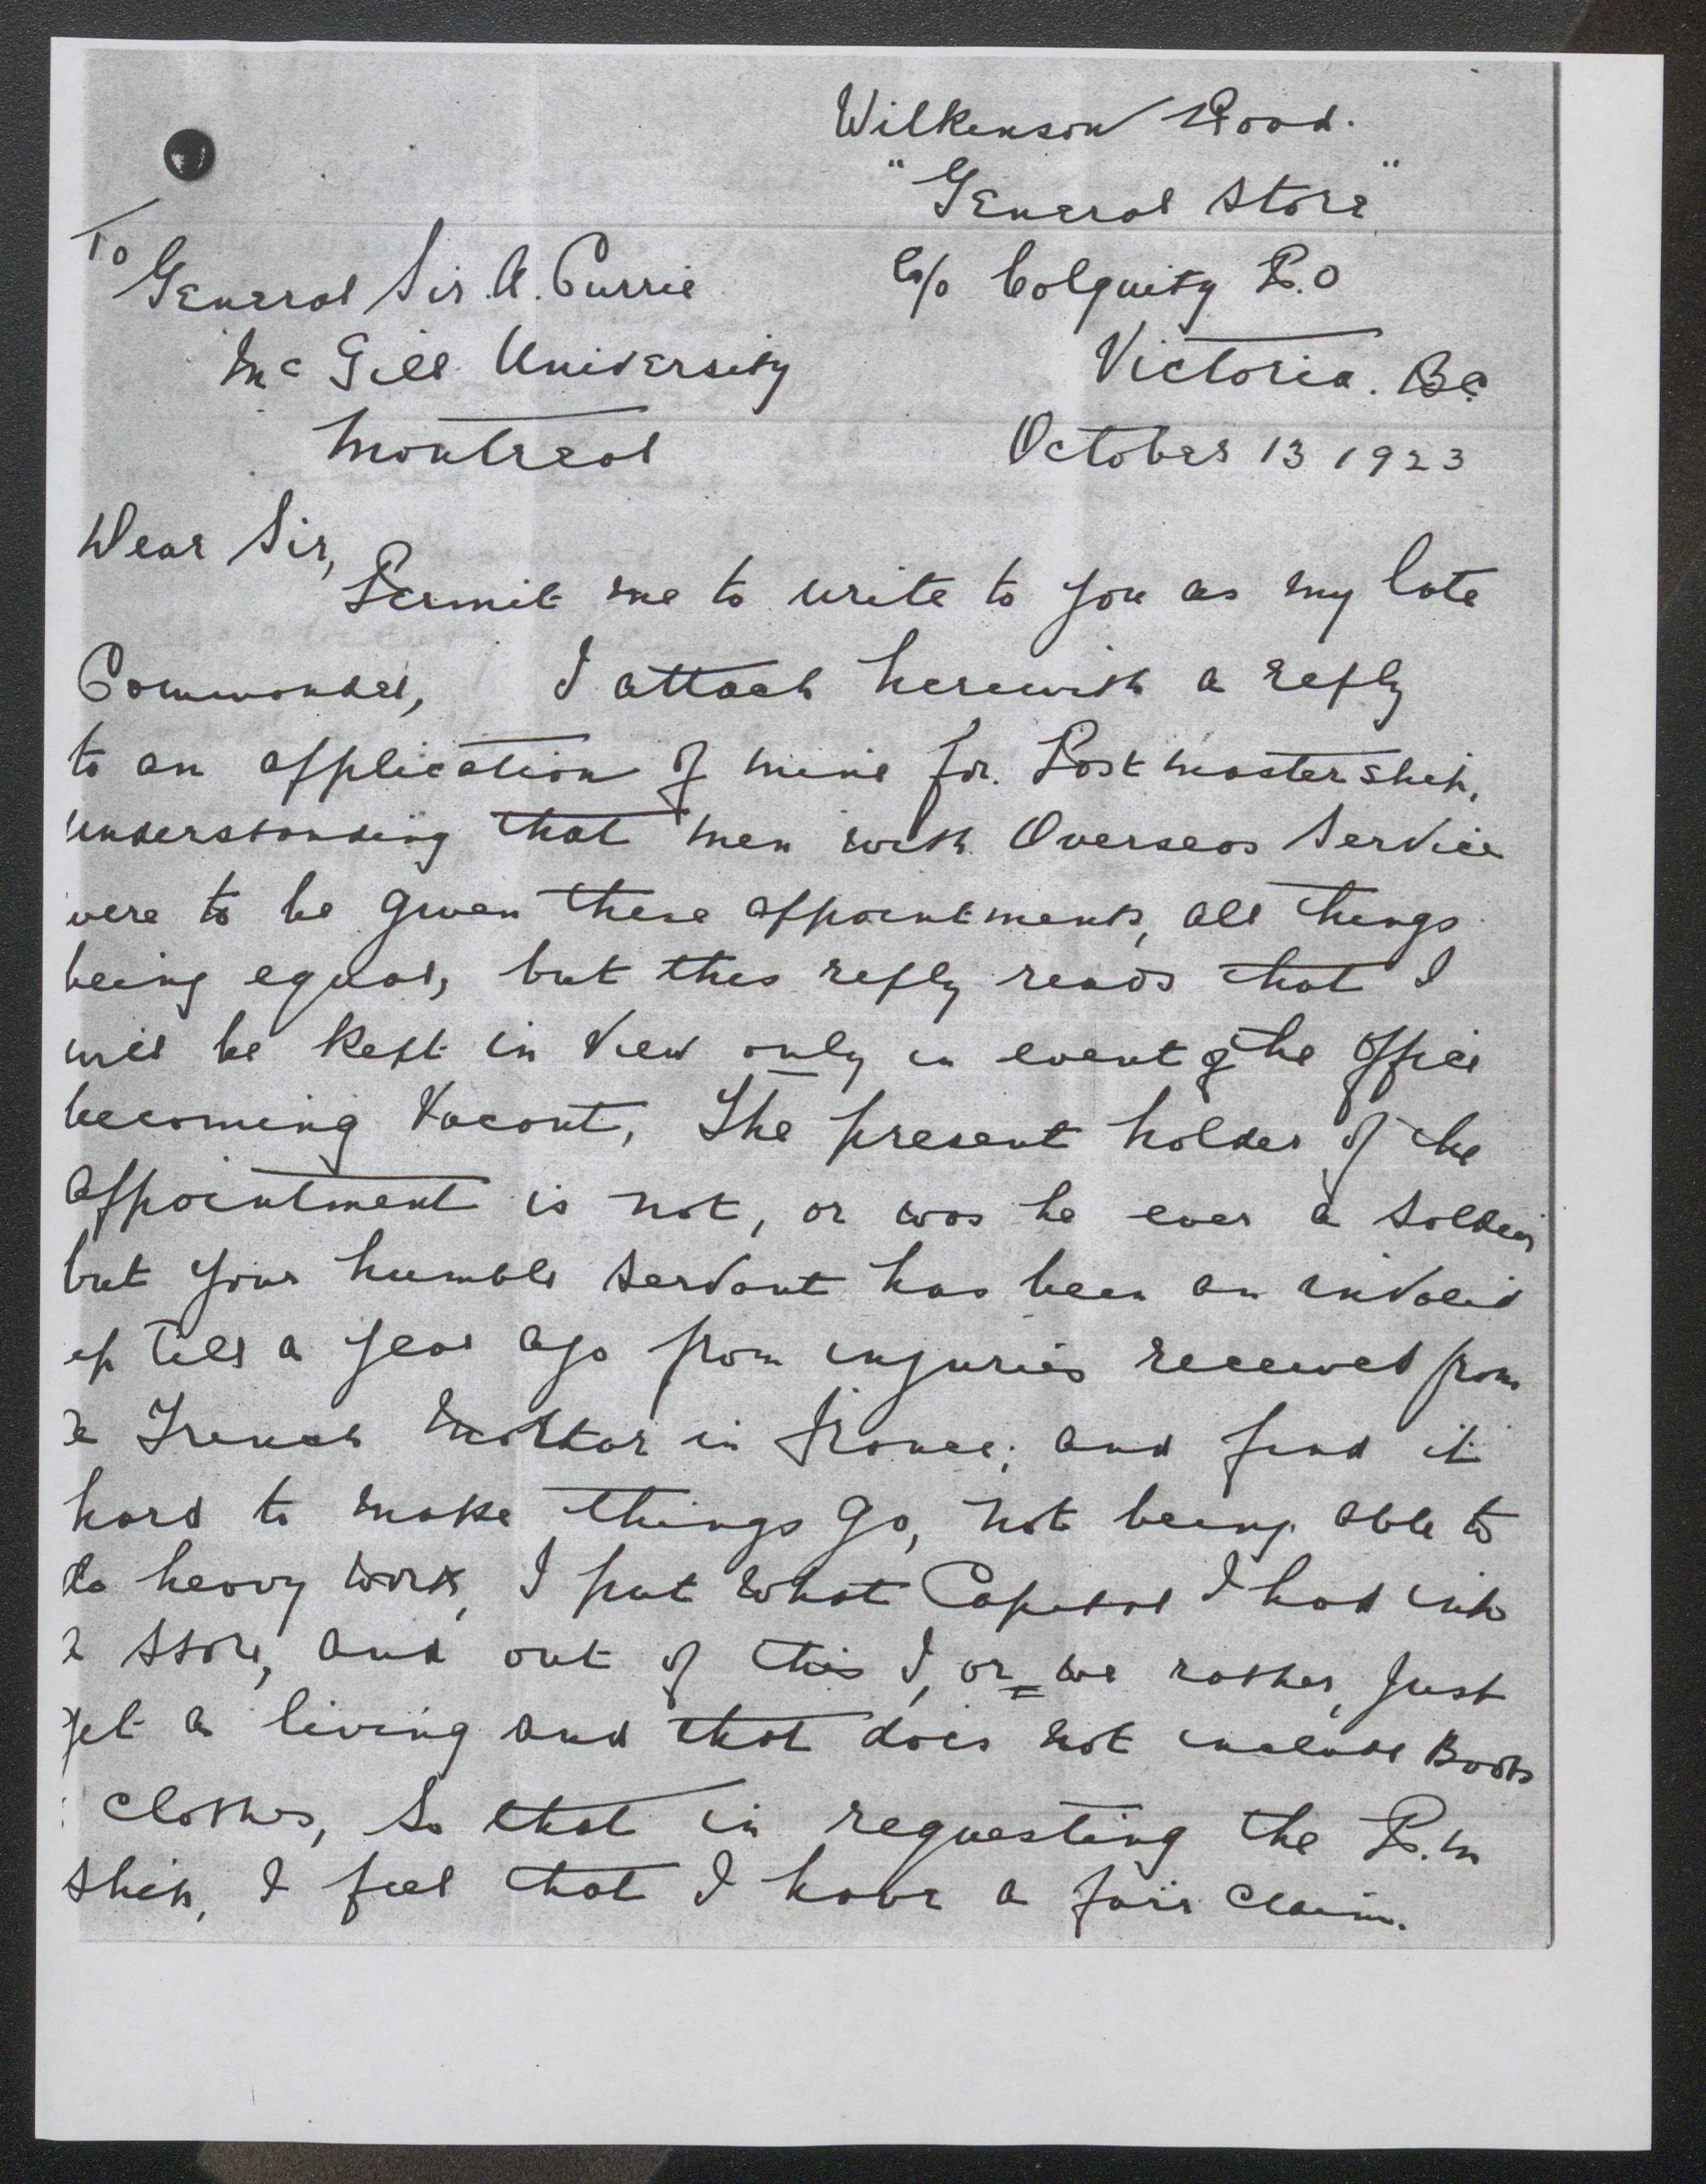 Wilkenson Road.
"General Store"
To
General Sir. A. Currie
c/o Colquity P.O
Mc Gill University
Victoria. BC
Montreal
October 13 1923
Dear Sir,
Permit me to write to you as my late
Commander, I attach herewith a reply
to an application of mine for. Postmastership,
understanding that men with Overseas Service
were to be given these appointments, all things
being equal, but this reply reads that I
will be kept in view only in event of the office
becoming vacant, The present holder of the
appointment is not, or was he ever a soldier
but your humble servant has been an invalid
up till a year ago from injuries received from
a Trench Mortar in France, and find it
hard to make things go, not being able to
do heavy work, I put what Capital I had into
a store, and out of this I, or we rather, just
get a living and that does not include Boots
clothes, so that in requesting the P.M
ship, I feel that I have a fair claim.